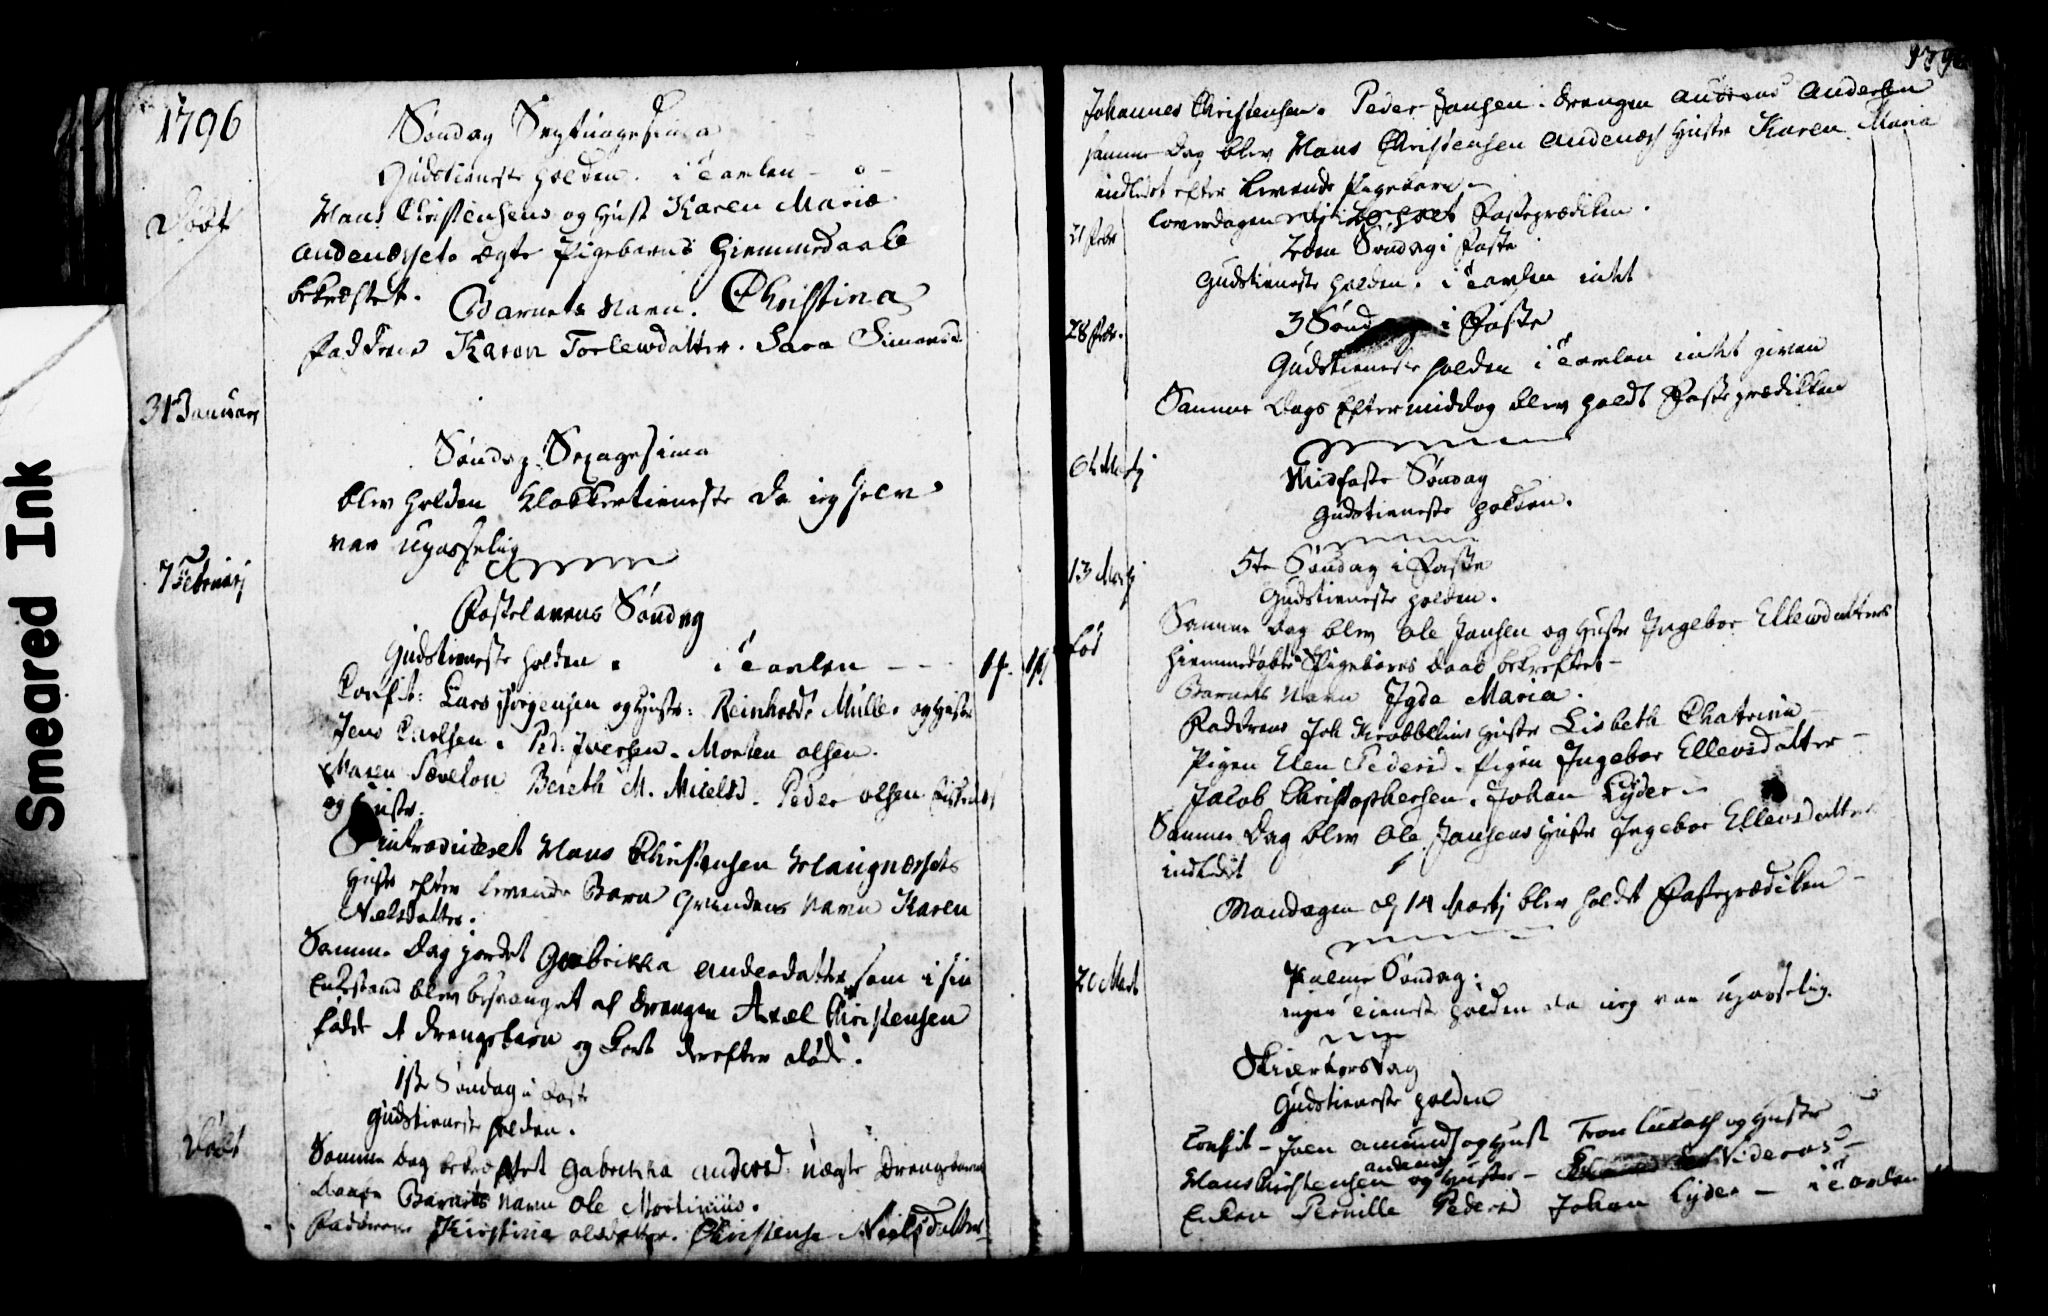 Smeared Ink
1796
Søndag Septuagesima
Gudstieneste holden. i Tavlen - o -
Døbt
Hans Christensens og Hust Karen Mariæ
Andenæsset. ægte Pigebarns Hiemmedaab
bekræftet.
Barnets Navn. Christina
Faddrene Karen Torlewdatter. Sara Simonsd.
31 Januarj
Søndag Sexagesima
blev holden Klokkertieneste da ieg selv
var upasselig
7 Februarj
Fastelavens Søndag
Gudstieneste holden. i Tavlen - - -
Confit: Lars Jørgensen og Hustr: Reinholdt Müller og Hustr
Jens Carlsen. Ped: Iversen. Morten olsen.
Maren Bereth M. Nielsd. Peder olsen
og Hustr.
introduceret Hans Christensen
Hustr efter levende Barn Hendes Navn Karen
Nielsdatter.
Samme Dag jordet Gabrikka Andersdatter som i sin
Enkestand blev besvangret af Drengen Axel Christensen
fødde et Drengebarn og kort derefter døde.
1ste Søndag i Faste
Gudstieneste holden.
Døbt
Samme Dag bekræftet Gabrikka Andersd. uægte Drengebarns
Daab Barnets Navn Ole Mortinius.
Faddrene Kirstina olsdatter. Christense Nielsdatter
179
Johannes Christensen. Peder Jansen. Drengen Andreas Andersen
samme Dag blev Hans Christensen Andenæs Hustr Karen Maria
indledet efter levende Pigebarn
Løverdagen holdt Fasteprædiken.
21 Febr
2den Søndag i Faste
Gudstieneste holden. i Tavlen intet
28 Febr.
3 Søndag i Faste
Gudstieneste holden i Tavlen intet given
Samme Dags Eftermiddag blev holdt Fasteprædiken
6te Martj
Midfaste Søndag
Gudstieneste holden.
13 Martj
5te Søndag i Faste
Gudstieneste holden.
Samme Dag blev Ole Jansen og Hustr Ingebor Ellewdatters
hiemmedøbte Pigebarns Daab bekreftet -
Barnets Navn Igda Maria.
Faddrene Joh Hustr Lisbeth Chatrina
Pigen Elen Pedersd. Pigen Ingebor Ellevsdatter -
Jacob Christophersen. Johan Lyder -
Samme Dag blev Ole Jansens Hustr Ingebor Ellevsdatter
indledet
Mandagen d 14 Martj blev holdt Fasteprædiken -
20 Mart
Palme Søndag.
ingen Tieneste holden da ieg var upasselig.
Skiertorsdag
Gudstieneste holden
Confit - Joen Amunds og Hust Tron og Hustr
Hans Christensen Andenæs og Hustr -
Enken Pernille Pedersd Johan Lyder - i Tavlen